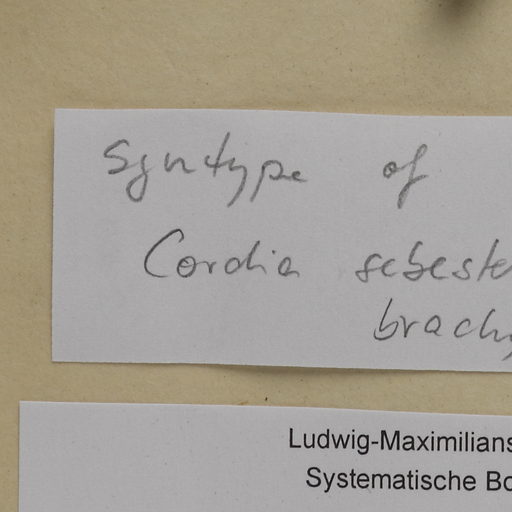 Syntype of
Cordia sebeste
brachy
Ludwig-Maximilians
Systematische Bo